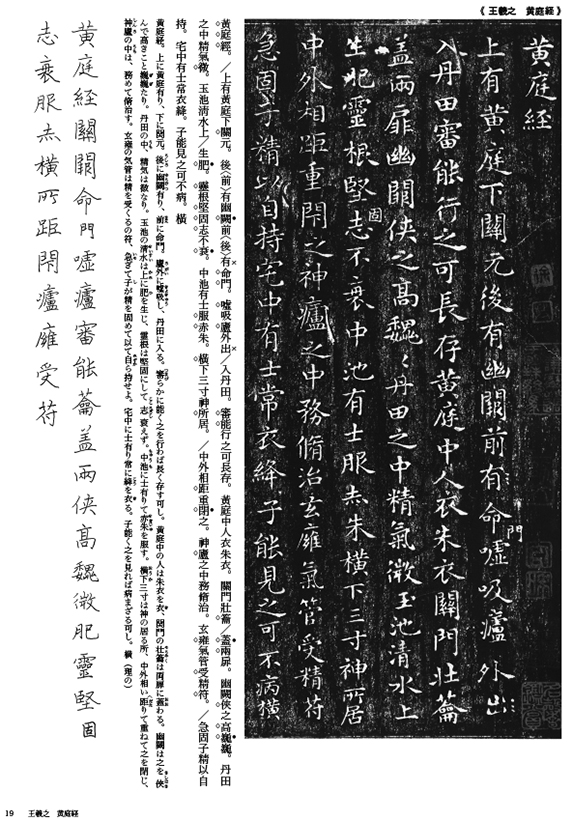 《王羲之　黄庭経》
黄庭經
上有黄庭下關元後有幽闕前有命
門
噓吸廬外出
入丹田審能行之可長存黄庭中人衣朱衣關門壯蘥
盖兩扉幽闕俠之高巍〻丹田之中精氣微玉池清水上
生肥靈根堅志不衰中池有士服赤朱横下三寸神所居
固
中外相距重閇之神廬之中務脩治玄癰氣管受精符
急固子精以自持宅中有士常衣絳子能見之可不病横
黄庭經。／上有黄庭下關元。後〈前〉有幽闕前〈後〉有命門。噓吸廬外出／入丹田。審能行之可長存。黄庭中人衣朱衣。關門壯蘥／蓋兩扉。幽闕俠之高巍巍。丹田
之中精氣微。玉池清水上／生肥。靈根堅固志不衰。中池有士服赤朱。横下三寸神所居。／中外相距重閉之。神廬之中務脩治。玄雍氣管受精符。／急固子精以自
持。宅中有士常衣絳。子能見之可不病。横
黄庭経。上に黄庭有り、下に関元。後に幽闕有り、前に命門。廬外に噓吸し、丹田に入る。審らかに能く之を行わば長く存す可し。黄庭中の人は朱衣を衣、関門の壮蘥は両扉に蓋わる。幽闕は之を俠
んで高きこと巍巍たり。丹田の中、精気は微なり。玉池の清水は上に肥を生じ、霊根は堅固にして、志、衰えず。中池に士有りて赤朱を服す。横下三寸は神の居る所、中外相い距りて重ねて之を閉じ、
神廬の中は、務めて脩治す。玄雍の気管は精を受くるの符、急ぎて子が精を固めて以て自ら持せよ。宅中に士有り常に絳を衣る。子能く之を見れば病まざる可し。横（理の）
黄庭経關闕命門噓廬審能蘥盖兩俠髙巍微肥靈堅固
志衰服赤横所距閇廬癰受符
19　王羲之　黄庭経